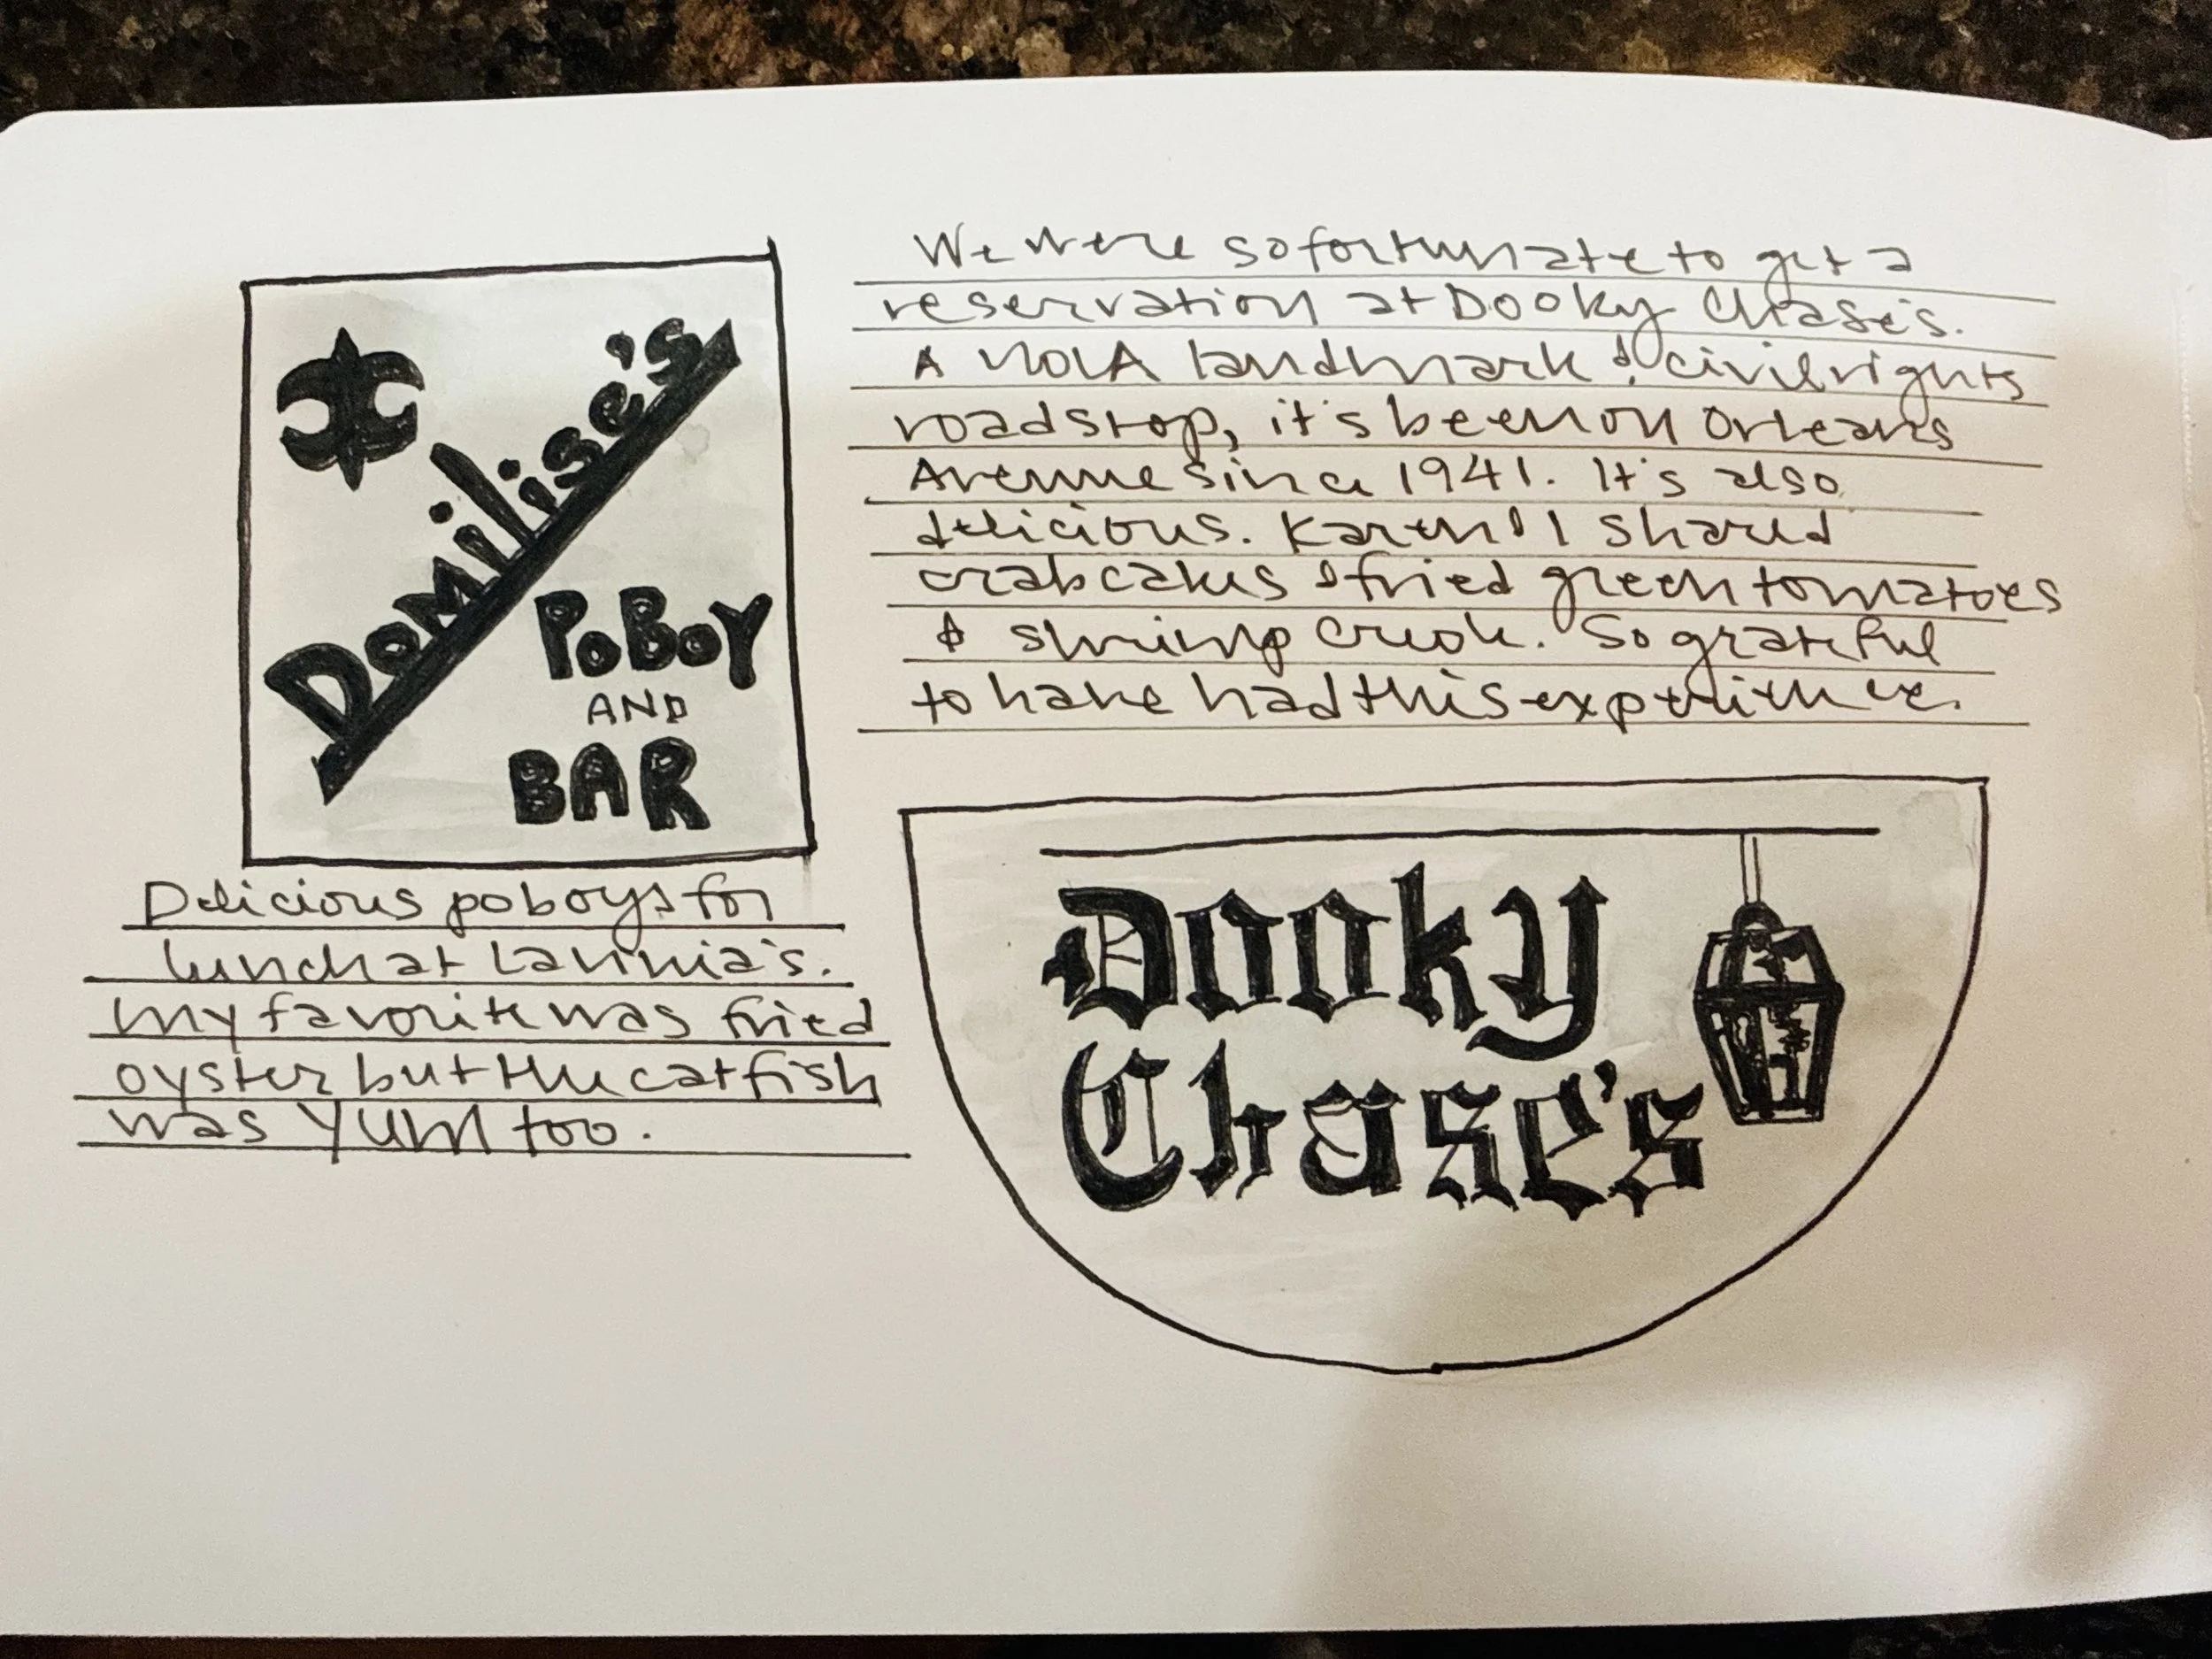 Domilise's
PoBoy
AND
BAR
Delicious poboys for
lunch at Lavinia's.
My favorite was fried
oyster but the catfish
was YUM too.
We were so fortunate to get a
reservation at Dooky Chase's.
A NOLA landmark & civil rights
road stop, it's been on Orleans
Avenue since 1941. It's also
delicious. Karen & I shared
crabcakes & fried green tomatoes
& shrimp creole. So grateful
to have had this experience.
Dooky
Chase's